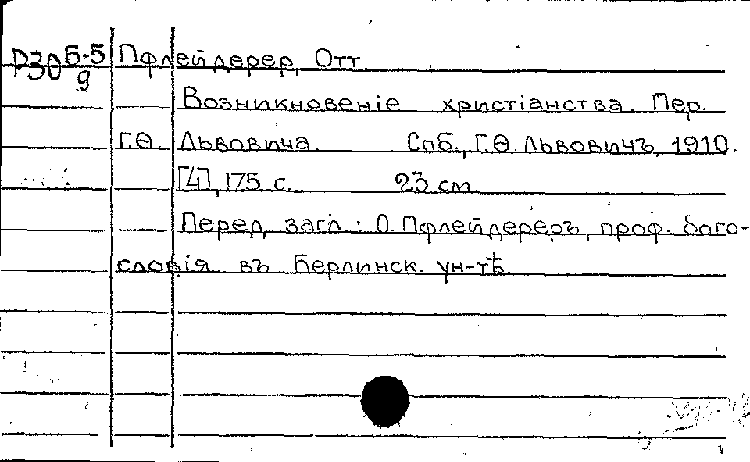 Р30 Б-5 Пфлейдерер, Отт
9
Возникновеніе христіанства. Пер.
Г.Ѳ. Львовича. Спб., Г.Ѳ. Львовичъ, 1910.
[4], 175 с. 23 см
Перед загл.: О. Пфлейдереръ, проф. бого-
словія въ Берлинск. ун-тѣ